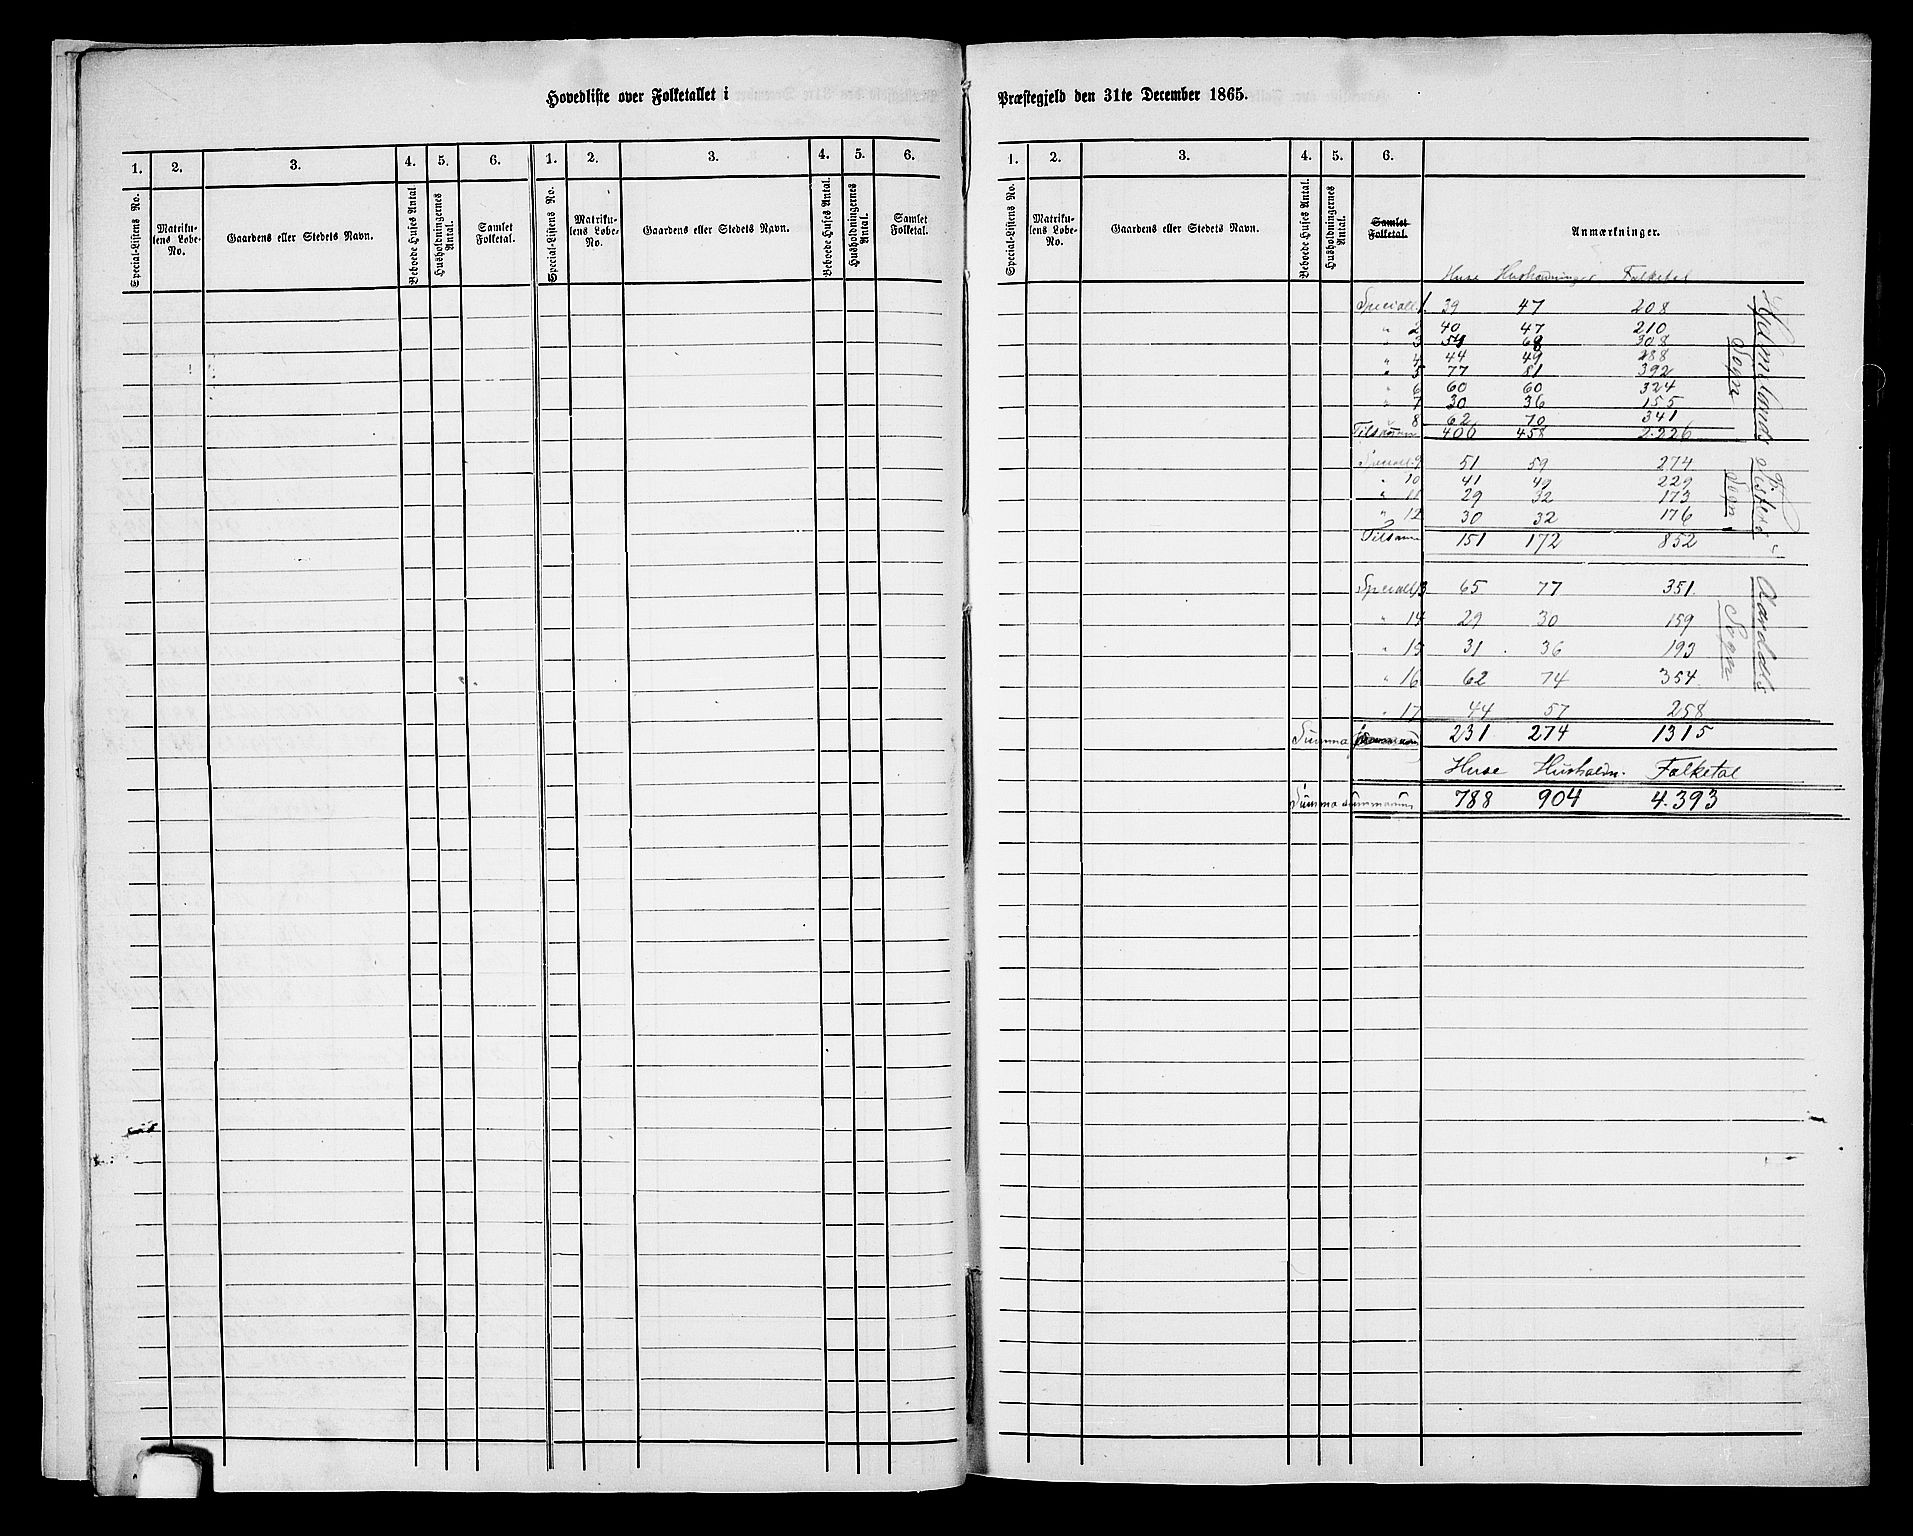 Hovedliste over Folketallet i
Præstegjeld den 31te December 1865.
1. 2. 3. 4. 5. 6. 1. 2. 3. 4. 5. 6.
Special-Listens No. Matriku-lens Løbe-No. Gaardens eller Stedets Navn. Beboede Huses Antal. Husholdningernes Antal. Samlet Folketal. Special-Listens No. Matriku-lens Løbe-No. Gaardens eller Stedets Navn. Beboede Huses Antal. Husholdningernes Antal. Samlet Folketal.
1. 2. 3. 4. 5. 6.
Special-Listens No. Matriku-lens Løbe-No. Gaardens eller Stedets Navn. Beboede Huses Antal. Husholdningernes Antal. Samlet Folketal. Anmærkninger.
Huse Husholdninger Folketal
Speciall. 1. 39 47 208
" 2 40 47 210
" 3 54 68 308
" 4 44 49 288
" 5 77 81 392
" 6 60 60 324
" 7 30 36 155
" 8 62 70 341
Tilsammen 406 458 2.226
Sogn
Speciall. 9 51 59 274
" 10 41 49 229
" 11 29 32 173
" 12 30 32 176
Tilsam 151 172 852
Sogn
Speciall. 13 65 77 351
" 14 29 30 159
" 15 31 36 193
" 16 62 74 354
" 17 44 57 258
Summa 231 274 1315
Sogn
Huse Husholdn. Folketal
Summa summarum 788 904 4.393